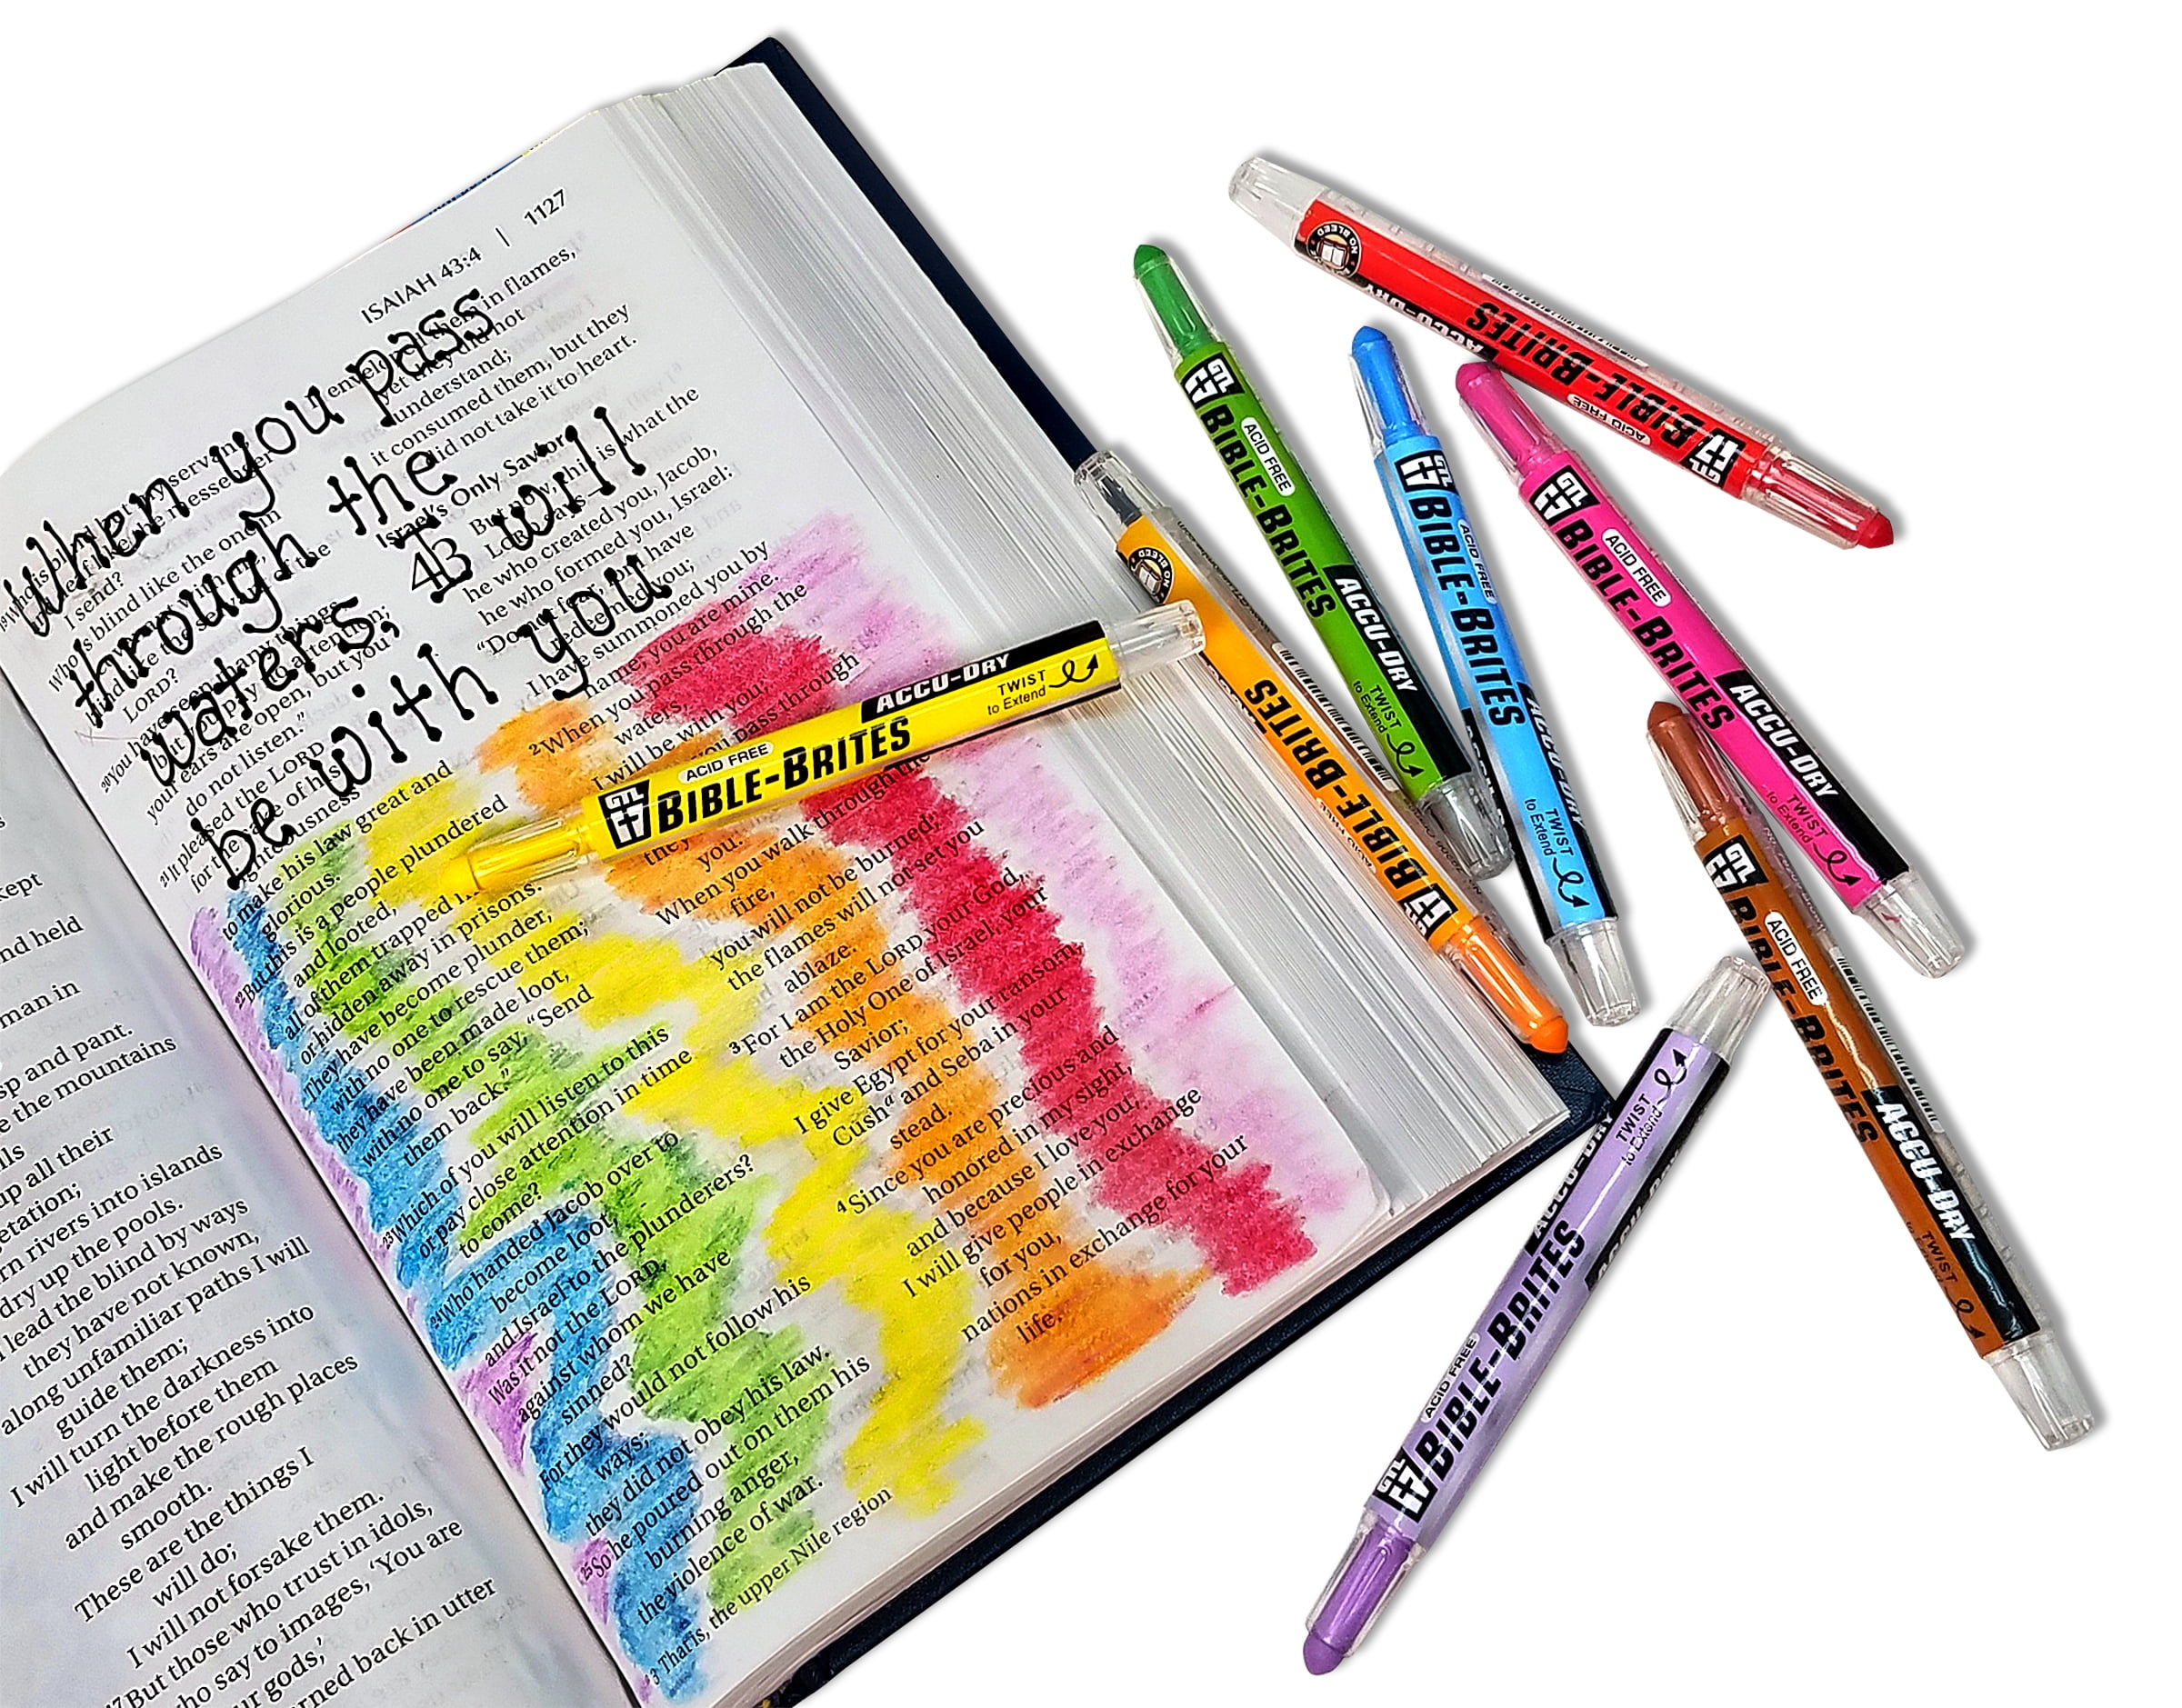 ISAIAH 43:4 | 1127
When you pass
through the
waters, I will
be with you
43
enveloped them in flames,
yet they did not
understand;
it consumed them, but they
did not take it to heart.
Israel's Only Savior
But now, this is what the
LORD says—
he who created you, Jacob,
he who formed you, Israel:
"Do not fear, for I have
redeemed you;
I have summoned you by
name; you are mine.
2 When you pass through the
waters,
I will be with you;
you pass through
they
you.
When you walk through the
fire,
you will not be burned;
the flames will not set you
ablaze.
3 For I am the LORD your God,
the Holy One of Israel, your
Savior;
I give Egypt for your ransom,
Cush a and Seba in your
stead.
4 Since you are precious and
honored in my sight,
and because I love you,
I will give people in exchange
for you,
nations in exchange for your
life.
19 Who is blind but my servant,
and deaf like the messenger
I send?
Who is blind like the one in
LORD?
20 You have seen many things,
but you pay no attention;
your ears are open, but you
do not listen."
21 It pleased the LORD
for the sake of his
righteousness
to make his law great and
glorious.
22 But this is a people plundered
and looted,
all of them trapped
or hidden away in prisons.
They have become plunder,
with no one to rescue them;
they have been made loot,
with no one to say, "Send
them back."
23 Which of you will listen to this
or pay close attention in time
to come?
24 Who handed Jacob over to
become loot,
and Israel to the plunderers?
Was it not the LORD,
against whom we have
sinned?
For they would not follow his
ways;
they did not obey his law.
25 So he poured out on them his
burning anger,
the violence of war.
a 3 That is, the upper Nile region
kept
and held
man in
sp and pant.
e the mountains
lls
up all their
etation;
rn rivers into islands
dry up the pools.
lead the blind by ways
they have not known,
along unfamiliar paths I will
guide them;
I will turn the darkness into
light before them
and make the rough places
smooth.
These are the things I
will do;
I will not forsake them.
17 But those who trust in idols,
who say to images, 'You are
our gods,'
rned back in utter
GTL BIBLE-BRITES
ACID FREE
ACCU-DRY
TWIST
to Extend
NO BLEED
BIBLE-BRITES
ACID FREE
ACCU-DRY
GTL BIBLE-BRITES
ACID FREE
ACCU-DRY
TWIST
to Extend
GTL BIBLE-BRITES
ACID FREE
ACCU-DRY
TWIST
to Extend
GTL BIBLE-BRITES
ACID FREE
ACCU-DRY
TWIST
to Extend
NO BLEED
BIBLE-BRITES
BIBLE-BRITES
GTL BIBLE-BRITES
ACID FREE
ACCU-DRY
TWIST
GTL BIBLE-BRITES
ACID FREE
ACCU-DRY
TWIST
to Extend